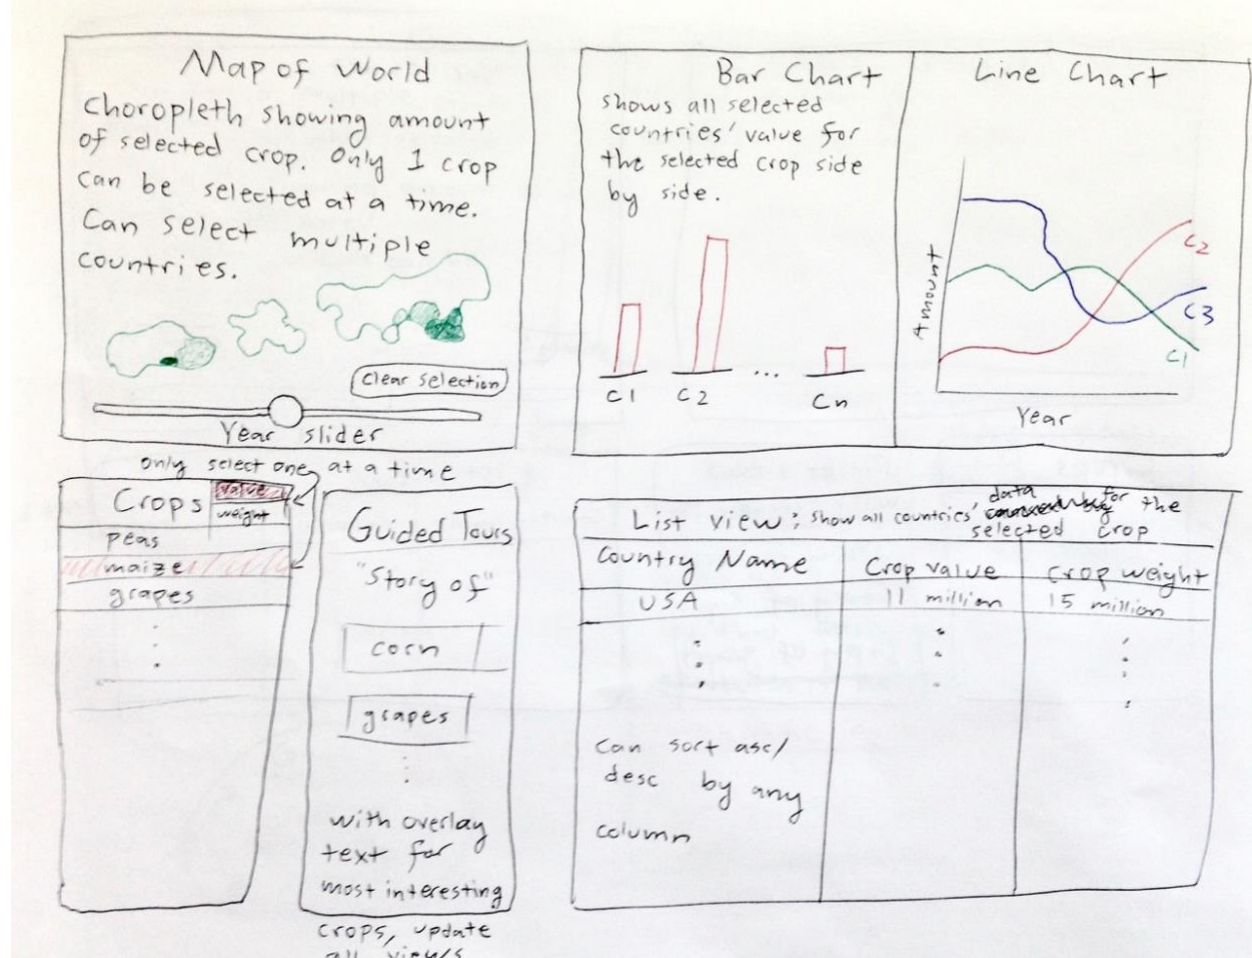 Map of World
Choropleth showing amount
of selected crop. Only 1 crop
can be selected at a time.
Can select multiple
countries.
Clear selection
Year slider
Bar Chart
shows all selected
countries' value for
the selected crop side
by side.
C1
C2
...
Cn
Line Chart
Amount
C2
C3
C1
Year
only select one at a time
Crops
value
weight
peas
maize
grapes
Guided Tours
"Story of"
corn
grapes
with overlay
text for
most interesting
crops, update
all views
List view: show all countries' data for the
selected crop
Country Name
Crop value
Crop weight
USA
11 million
15 million
Can sort asc/
desc by any
column